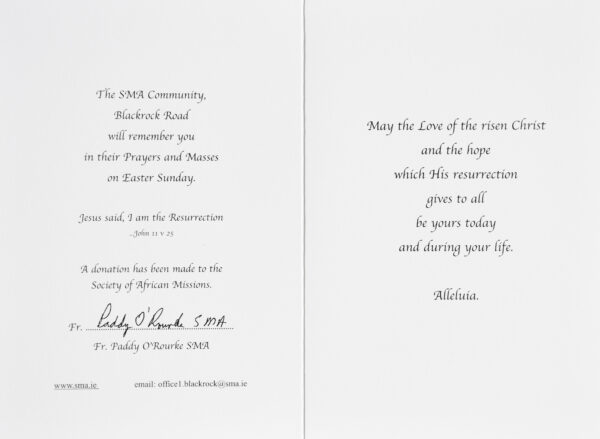 The SMA Community,
Blackrock Road
will remember you
in their Prayers and Masses
on Easter Sunday.
Jesus said, I am the Resurrection
..John 11 v 25
A donation has been made to the
Society of African Missions.
Fr. Paddy O'Rourke SMA
Fr. Paddy O'Rourke SMA
www.sma.ie email: office1.blackrock@sma.ie
May the Love of the risen Christ
and the hope
which His resurrection
gives to all
be yours today
and during your life.
Alleluia.